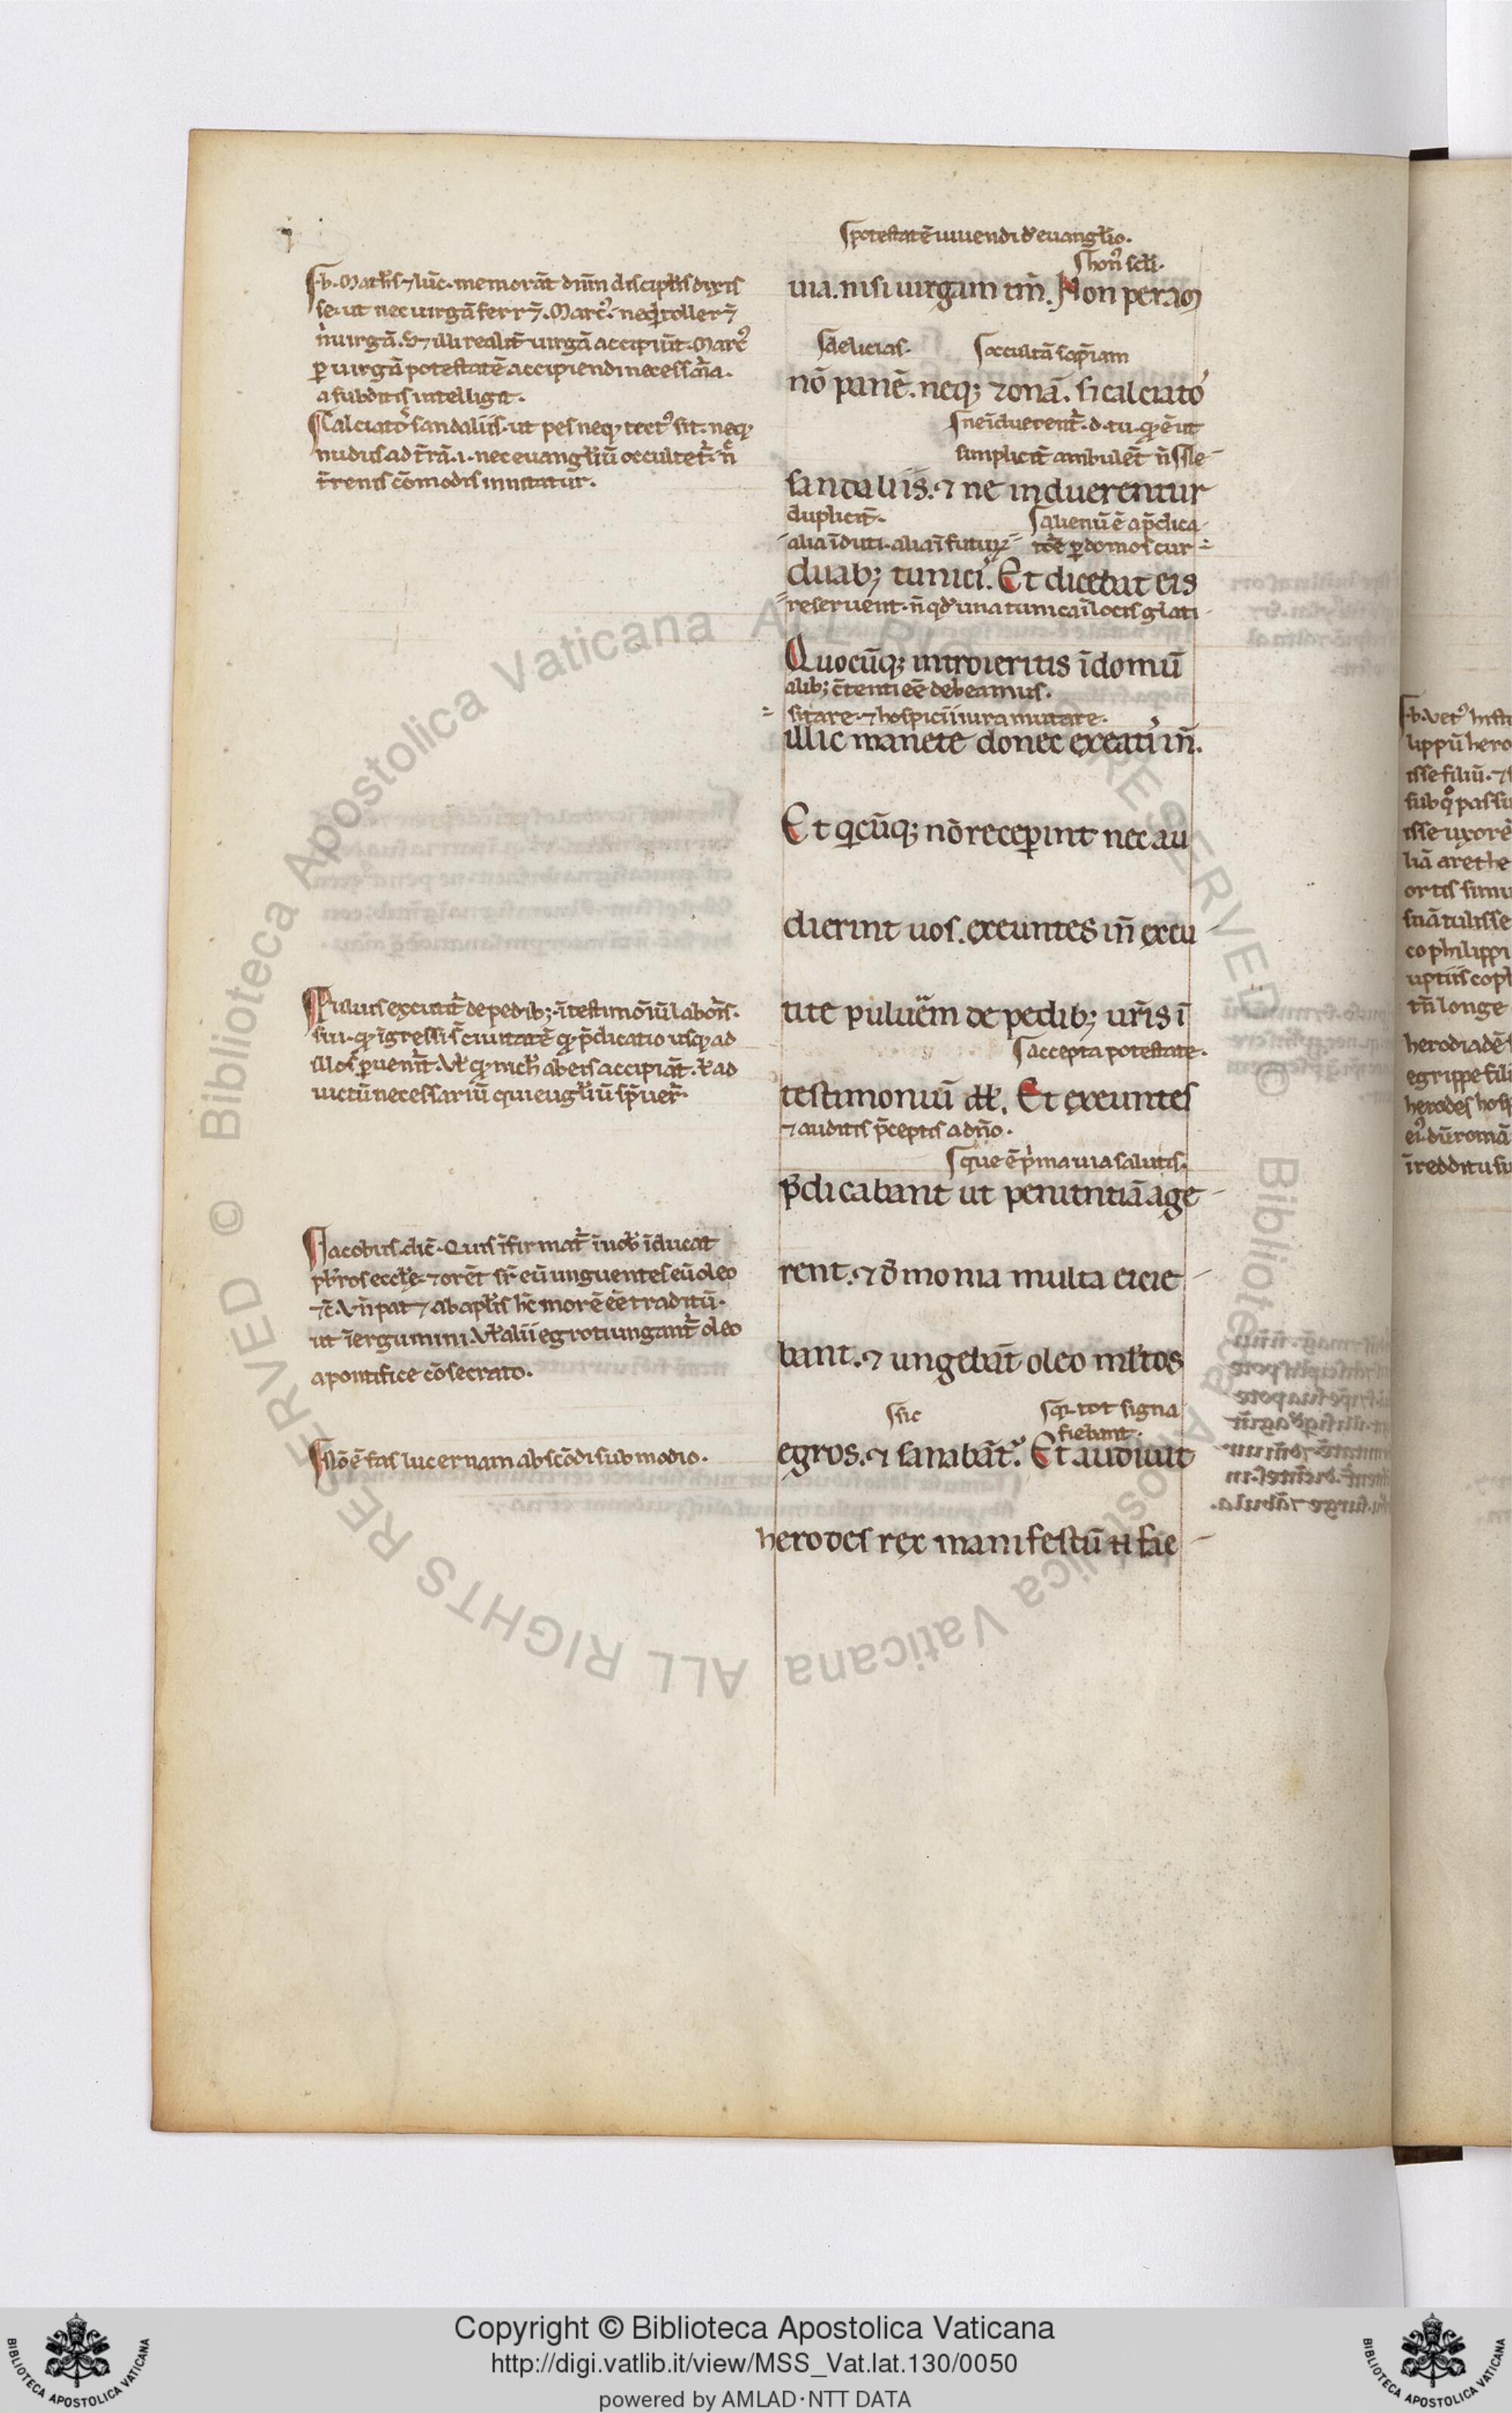 potestatē uiuendi d' euangl'io.
honꝰ scl'i.
uia. nisi uirgam tm̄. Non peram
delicias.
occultā sap̄iam
nō panē. neq; zonā. s; calciatoˢ
ne īduerent̄. d. tu. q̄ ē ut
simplicit̄ ambulēt n̄
sandaliis. ⁊ ne induerentur
duplicit̄.
alienū ē a p̄dica
alia īduti. alia ī futuꝝ
tōe ꝑ domos cur
duab; tunicis. Et dicebat eis
reseruent. n̄ qd' una tunica ī locis glati
Quocūq; introieritis ī domū
alib; ꝯtenti eē debeamus.
sitare. ⁊ hospicii iura mutare.
illic manete donec exeatis in̄.
Et q̄cūq; nō receꝑint nec au
dierint uos. exeuntes in̄ excu
tite puluēm de pedib; ur̄is ī
accepta potestate.
testimoniū ill'. Et exeuntes
⁊ auditis p̄ceptis a dn̄o.
que ē p̄ma uia salutis.
p̄dicabant ut penitn̄tiā age
rent. ⁊ dēmonia multa eicie
bant. ⁊ ungebāt oleo ml'tos
sic
q̄ tot signa
fiebant.
egros. ⁊ sanabāt. Et audiuit
herodes rex manifestū n̄ fac
b. Math's ⁊ luc̄. memorāt dn̄m discipl'is dixis
se. ut nec uirgā ferrēt. Marcꝰ. ne quid tollerēt
n̄ uirgā. S; ⁊ illi realit̄ uirgā accipiūt. Marcꝰ
ꝑ uirgā potestatē accipiendi necessāia.
a subditis intelligit.
Calciatoˢ sandaliis. ut pes neq; tectꝰ sit. neq;
nudus ad t̄rā. i. nec euangl'iū occultet̄. n̄
t̄renis cōmodis innitatur.
Puluis excutit̄ de pedib;. ī testimōiū laboris.
sui. q̄ īgressi s̄ ciuitatē q̄ p̄dicatio usq; ad
illos ꝑuenit̄. Ul' q̄ nich' ab eis accipiāt. ul' ad
uictū necessariū qui eugl'iū sp̄uer̄.
Jacobus dic̄. Quis īfirmat̄ ī uob' īducat
p̄b'ros eccl'ę. ⁊ orēt sr̄ eū unguentes eū oleo
⁊c̄. Vn̄ pat; ⁊ ab apl'is hc̄ morē eē traditū.
ut īergumini. Ul' alii egroti ungant̄ oleo
a pontifice cōsecrato.
Nō ē fas lucernam abscōdi sub modio.
b. Vetꝰ hist
lippū hero
isse filiū. ⁊
sub qͦ passu
isse uxorē
liā arethe
ortis simu
suā tulisse
co philippi
uptiis coph
tn̄ longe
herodiadē
egrippe fili
herodes
eiꝰ. dū romā
ī redditu su
Copyright © Biblioteca Apostolica Vaticana
http://digi.vatlib.it/view/MSS_Vat.lat.130/0050
powered by AMLAD·NTT DATA
© Biblioteca Apostolica Vaticana ALL RIGHTS RESERVED © Biblioteca Apostolica Vaticana ALL RIGHTS RESERVED
BIBLIOTECA APOSTOLICA VATICANA
BIBLIOTECA APOSTOLICA VATICANA